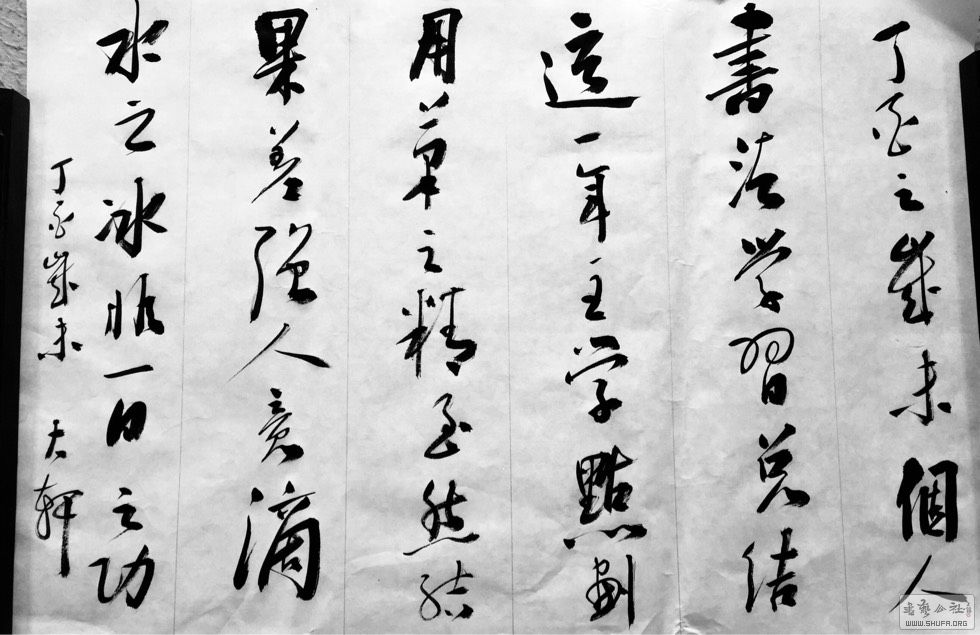 丁酉之歲末個人
書法學習总结
這一年主学點劃
用筆之精到然结
果差强人意滴
水之冰非一日之功
丁酉歲末 大軒
書藝公社
WWW.SHUFA.ORG